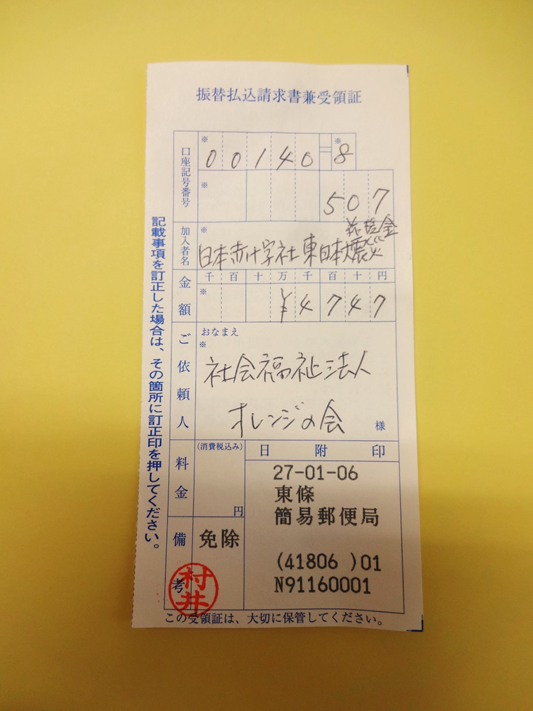 振替払込請求書兼受領証
口座記号番号
※ 00140=※8
※ 507
加入者名
※
義援金
日本赤十字社東日本大震災
金額
千百十万千百十円
※ ¥4747
ご依頼人
おなまえ
※
社会福祉法人
オレンジの会
様
料金
(消費税込み)
円
日附印
27-01-06
東條
簡易郵便局
(41806 )01
N91160001
備考
免除
村井
この受領証は、大切に保管してください。
記載事項を訂正した場合は、その箇所に訂正印を押してください。